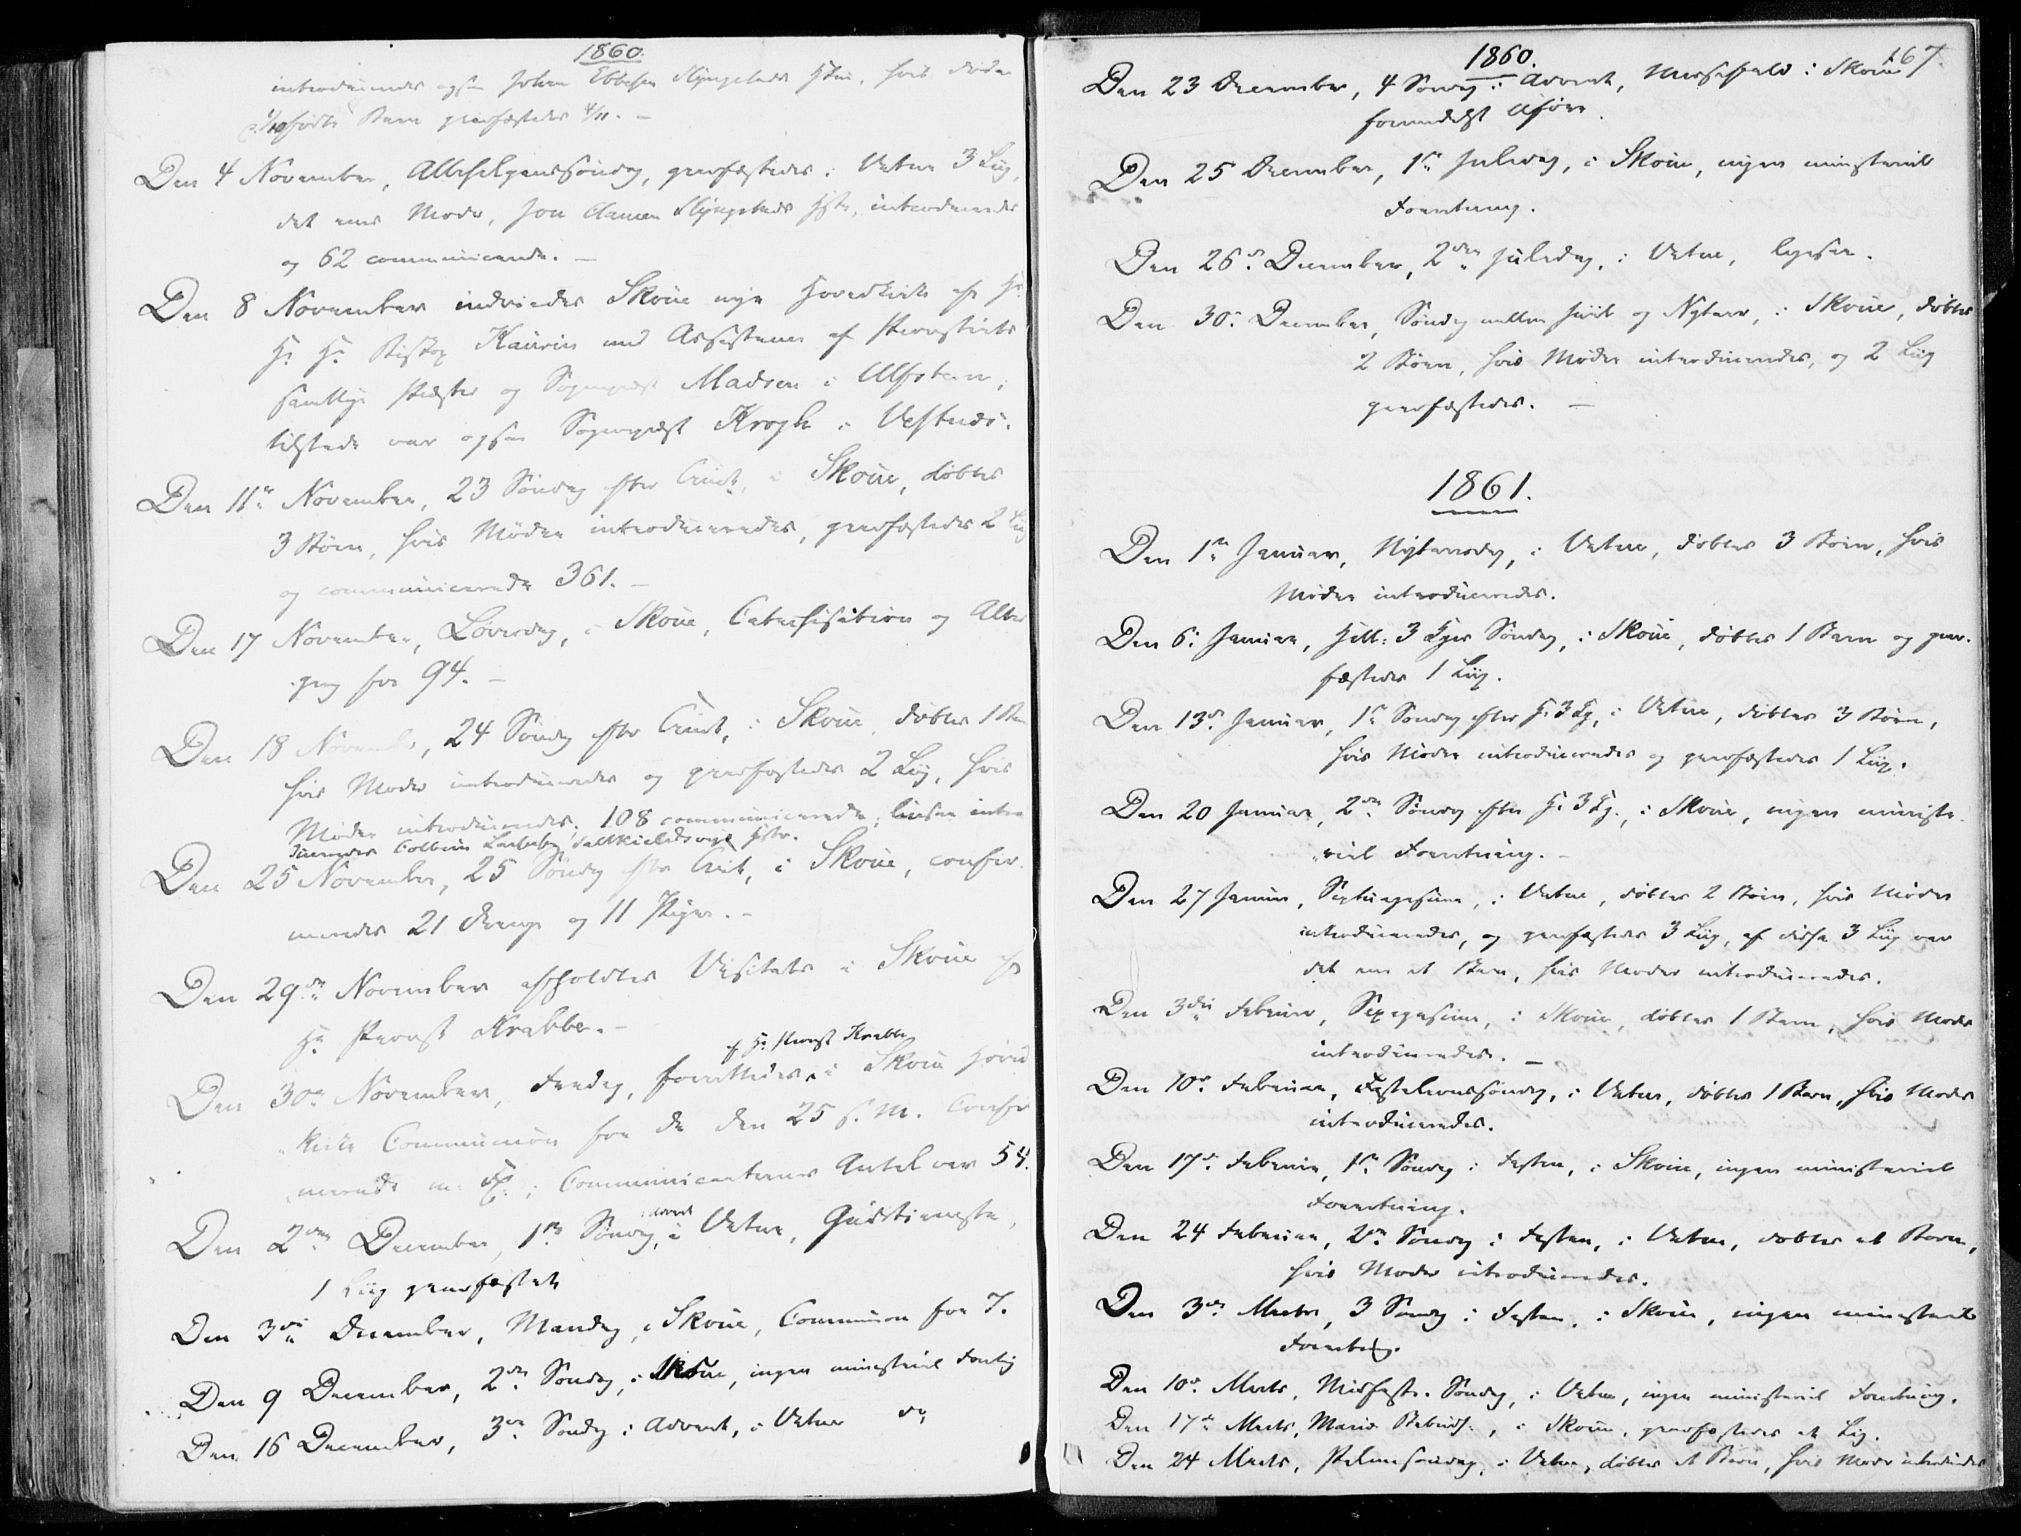 1860.
introduceredes ogsaa Johan Ebbesen Slyngstads Hstru, hvis døde
fødte Barn jordfæstedes 4/11. —
Den 4 November, Allehelgenssøndag, jordfæstedes i Vatne 3 Liig,
det enes Moder, Jon Slyngstads Hstr, introduceredes
og 62 communicerede. —
Den 8 November indviedes Skoue nye Hovedkirke af Hr
Hr Biskop Kaurin med Assistence af Provstiets
samtlige Præster og Sognepræst Madsen i ;
tilstede var ogsaa Sognepræst Krogh i Vestnæs.
Den 11te November, 23 Søndag efter Trinit, i Skoue, døbtes
3 Børn, hvis Mødre introduceredes, jordfæstedes 2 Liig
og communicerede 361. —
Den 17 November, Løverdag, i Skoue, Catechisation og Alter
gang for 94. —
Den 18 November, 24 Søndag efter Trinit, i Skoue, døbtes 1 Barn
hvis Moder introduceredes og jordfæstedes 2 Liig, hvis
Mødre introduceredes; 108 communicerede; intro
duceredes Hstr.
Den 25 November, 25 Søndag efter Trinit, i Skoue, confir
meredes 21 Drenge og 11 Piger. —
Den 29de November afholdtes Visitats i Skoue af
Hr Provst Krabbe. —
af Hr Provst Krabbe
Den 30te November, Fredag, forrettedes i Skoue Hoved
kirke Communion for de den 25 s. M. Confir
merede m. Fl.; Communicanternes Antal var 54.
Advent
Den 2den December, 1ste Søndag i Vatne, Gudstieneste,
1 Liig jordfæstet
Den 3die December, Mandag, i Skoue, Communion for 7.
Den 9 December, 2den Søndag, i Skoue, ingen ministeriel Forretng
Den 16 December, 3die Søndag i Advent, i Vatne do
1860.
167.
Den 23 December, 4 Søndag i Advent, Messefald i Skoue
formedelst Uføre.
Den 25 December, 1ste Juledag, i Skoue, ingen ministeriel
Forretning.
Den 26de December, 2den Juledag, i Vatne, ligesaa.
Den 30te December, Søndag mellem Juul og Nytaar, i Skoue, døbtes
2 Børn, hvis Mødre introduceredes, og 2 Liig
jordfæstedes. —
1861.
Den 1ste Januar, Nytaarsdag, i Vatne, døbtes 3 Børn, hvis
Mødre introduceredes.
Den 6te Januar, Hell: 3 Kgers Søndag, i Skoue, døbtes 1 Barn og jord-
fæstedes 1 Liig.
Den 13de Januar, 1ste Søndag efter H. 3 Kg, i Vatne, døbtes 3 Børn,
hvis Mødre introduceredes og jordfæstedes 1 Liig.
Den 20 Januar, 2den Søndag efter H. 3 Kg., i Skoue, ingen ministe
riel Forretning. —
Den 27 Januar, Septuagesima, i Vatne, døbtes 2 Børn, hvis Mødre
introduceredes, og jordfæstedes 3 Liig, af disse 3 Liig var
det ene et Barn, hvis Moder introduceredes.
Den 3die Februar, Sexagesima, i Skoue, døbtes 1 Barn, hvis Moder
introduceredes. —
Den 10de Februar, Fastelavnssøndag, i Vatne, døbtes 1 Barn, hvis Moder
introduceredes.
Den 17de Februar, 1ste Søndag i Fasten, i Skoue, ingen ministeriel
Forretning.
Den 24 Februar, 2den Søndag i Fasten, i Vatne, døbtes et Barn,
hvis Moder introduceredes.
Den 3die Marts, 3 Søndag i Fasten, i Skoue, ingen ministeriel
Forretng.
Den 10de Marts, Midfaste Søndag, i Vatne, ingen ministeriel Forretning.
Den 17de Marts, Mariæ Bebud:, i Skoue, jordfæstedes et Lig.
Den 24 Marts, Palmesøndag, i Vatne, døbtes et Barn, hvis Moder introducedes